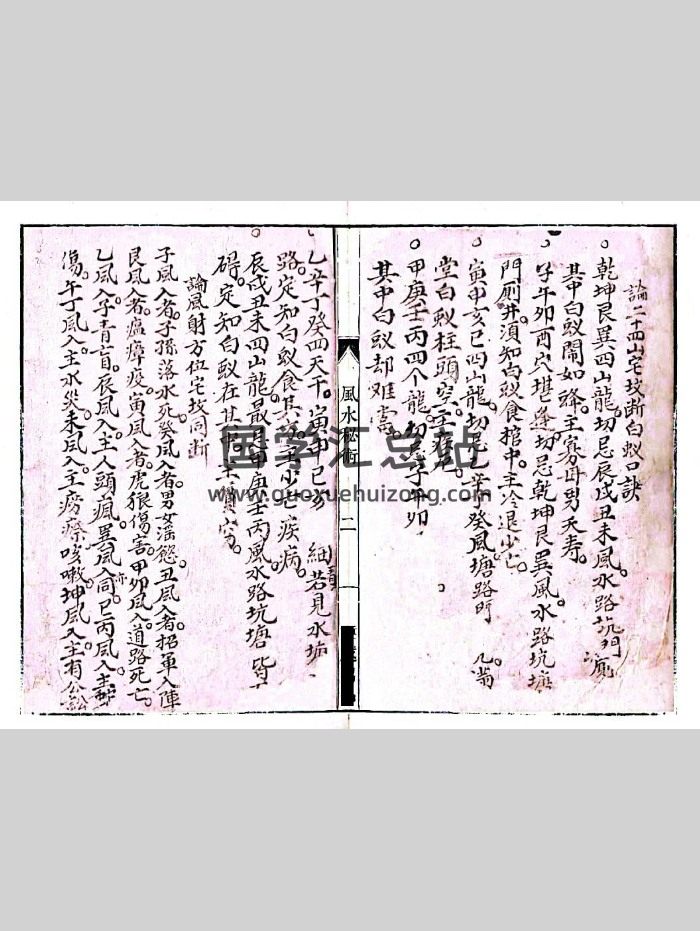 論二十四山宅坟断白蚁口訣
乾坤艮巽四山龍切忌辰戌丑未風水路坑門
其中白蚁鬧如蜂。主寡母男夭寿。
子午卯酉穴堪逢。切忌乾坤艮巽。風水路坑塘
門厠井須知白蚁食棺中。主冷退少亡。
寅申亥巳四山龍。切忌乙辛丁癸風塘路門
堂白蚁柱頭空。
甲庚壬丙四个龍。子午卯
其中白蚁却难當。
風水秘術
二
乙辛丁癸四天干。寅申巳亥細若見水
路。定知白蚁食其少亡疾病。
辰戌丑未四山龍。最忌甲庚壬丙風水路坑塘皆
碍。定知白蚁在其
論風射方位宅坟同断
子風入者。子孫落水死。癸風入者男女淫慾。丑風入者招軍入陣
艮風入者。瘟瘴疫。寅風入者。虎狼傷害。甲卯風入。道路死亡。
乙風入。子青盲。辰風入。主人頭瘋。巽風入同。巳丙風入主
傷。午丁風入。主水災。未風入。主癆瘵咳嗽。坤風入主有公訟
国学汇总站
www.guoxuehuizong.com